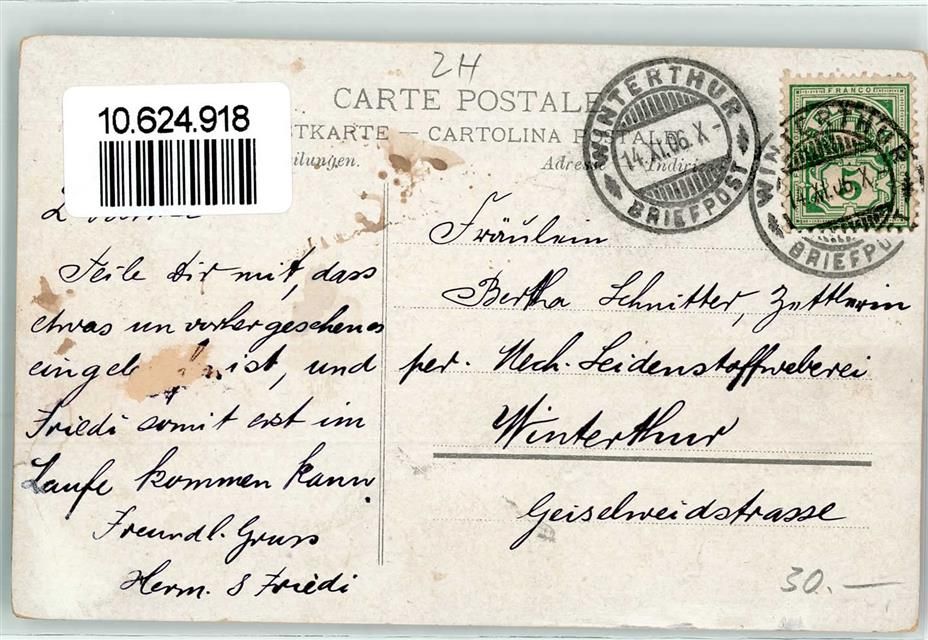 2H
10.624.918
CARTE POSTALE
STKARTE — CARTOLINA POSTALE
ilungen.
Adresse Indiri
WINTERTHUR
14.XII.06.X-
BRIEFPOST
FRANCO
5
WINTERTHUR
14.XII.06.X
BRIEFPO
Teile Dir mit, dass
etwas unvorhergesehenes
eingel ist, und
Friedi somit erst im
Laufe kommen kann.
Freundl. Gruss
Herm. & Friedi
Fräulein
Bertha Schnitter, Zettlerin
per. Mech. Seidenstoffweberei
Winterthur
Geiselweidstrasse
30.—